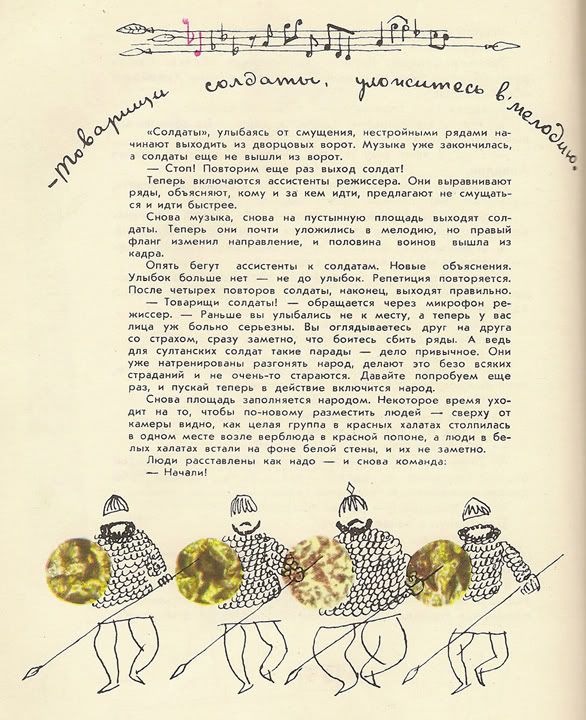 -Товарищи солдаты, уложитесь в мелодию.
«Солдаты», улыбаясь от смущения, нестройными рядами на-
чинают выходить из дворцовых ворот. Музыка уже закончилась,
а солдаты еще не вышли из ворот.
— Стоп! Повторим еще раз выход солдат!
Теперь включаются ассистенты режиссера. Они выравнивают
ряды, объясняют, кому и за кем идти, предлагают не смущать-
ся и идти быстрее.
Снова музыка, снова на пустынную площадь выходят сол-
даты. Теперь они почти уложились в мелодию, но правый
фланг изменил направление, и половина воинов вышла из
кадра.
Опять бегут ассистенты к солдатам. Новые объяснения.
Улыбок больше нет — не до улыбок. Репетиция повторяется.
После четырех повторов солдаты, наконец, выходят правильно.
— Товарищи солдаты! — обращается через микрофон ре-
жиссер. — Раньше вы улыбались не к месту, а теперь у вас
лица уж больно серьезны. Вы оглядываетесь друг на друга
со страхом, сразу заметно, что боитесь сбить ряды. А ведь
для султанских солдат такие парады — дело привычное. Они
уже натренированы разгонять народ, делают это безо всяких
страданий и не очень-то стараются. Давайте попробуем еще
раз, и пускай теперь в действие включится народ.
Снова площадь заполняется народом. Некоторое время ухо-
дит на то, чтобы по-новому разместить людей — сверху от
камеры видно, как целая группа в красных халатах столпилась
в одном месте возле верблюда в красной попоне, а люди в бе-
лых халатах встали на фоне белой стены, и их не заметно.
Люди расставлены как надо — и снова команда:
— Начали!